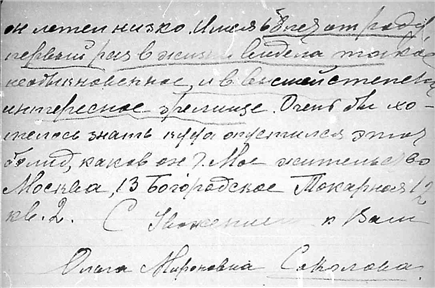 он летел низко. Имея 63 лет от роду,
первый раз в жизни видела такое
необыкновенное и в высшей степени
интересное зрелище. Очень бы хо-
телось знать куда опустился этот
болид, каков он? Мое жительство
Москва, 13 Богородское Токарная 12
кв. 2. С Уважением к Вам
Ольга Мироновна Соколова.